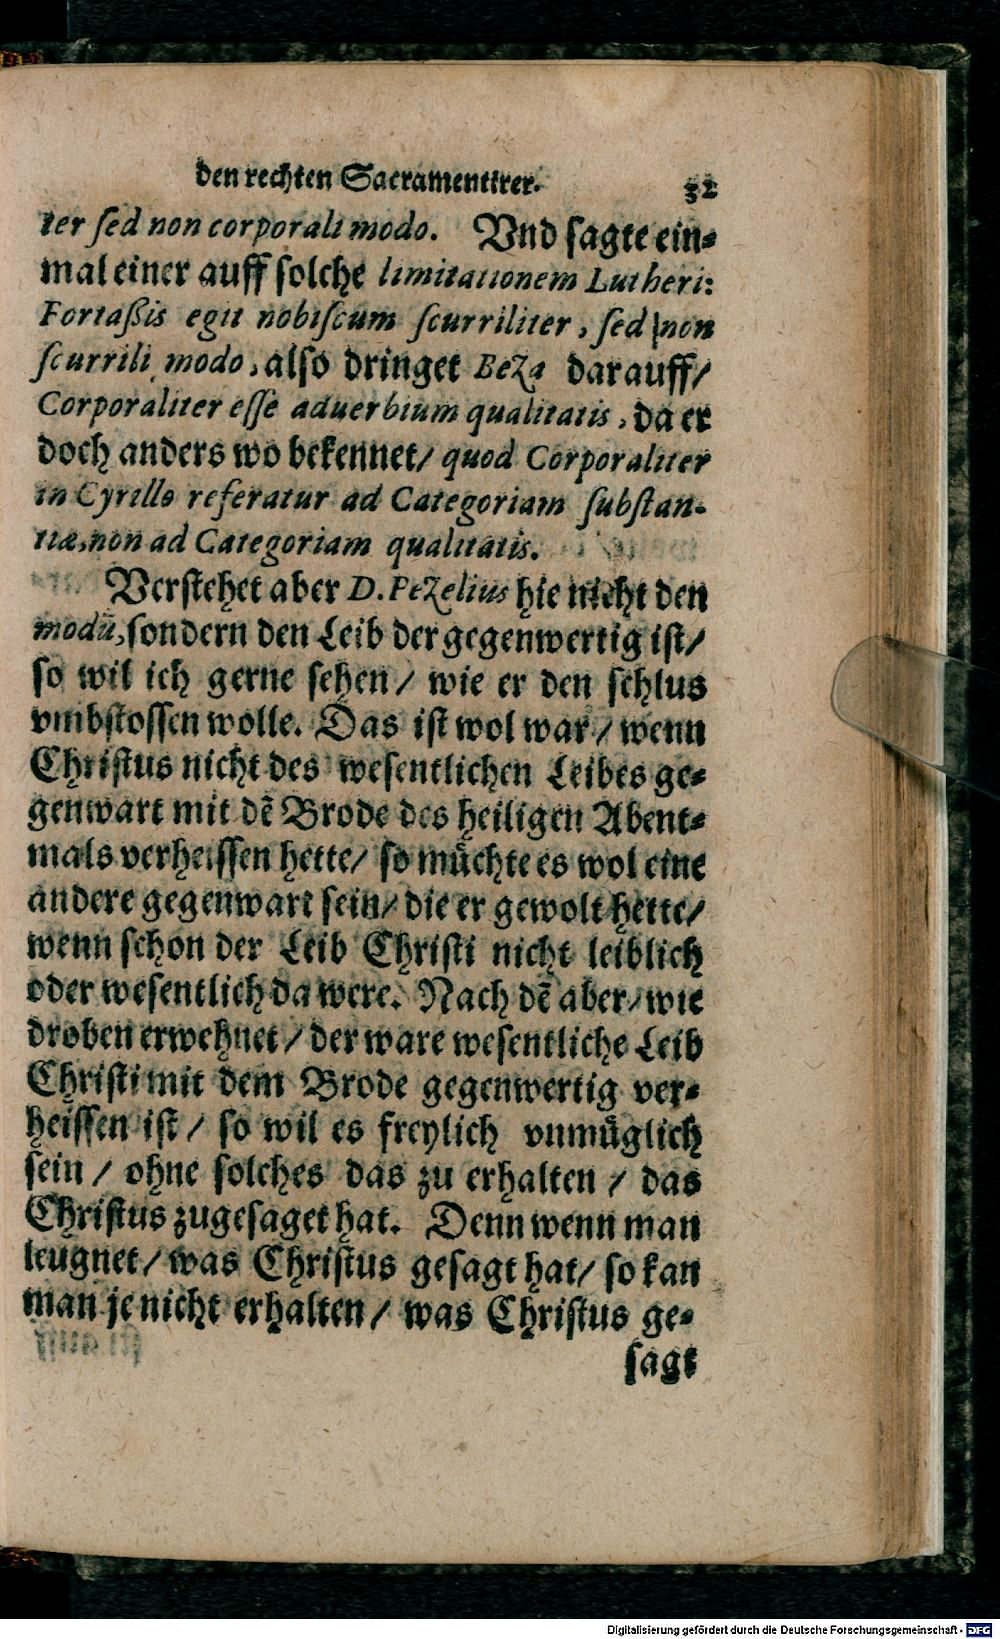 den rechten Sacramentirer. 32
ter sed non corporali modo. Vnd sagte ein⸗
mal einer auff solche limitationem Lutheri:
Fortaßis egit nobiscum scurriliter, sed non
scurrili modo, also dringet Beza darauff/
Corporaliter esse aduerbium qualitatis, da er
doch anders wo bekennet/ quod Corporaliter
in Cyrillo referatur ad Categoriam substan-
tiæ, non ad Categoriam qualitatis.
Verstehet aber D. Pezelius hie nicht den
modũ, sondern den Leib der gegenwertig ist/
so wil ich gerne sehen/ wie er den schlus
vmbstossen wolle. Das ist wol war/ wenn
Christus nicht des wesentlichen Leibes ge⸗
genwart mit dẽ Brode des heiligen Abent⸗
mals verheissen hette/ so müchte es wol eine
andere gegenwart sein/ die er gewolt hette/
wenn schon der Leib Christi nicht leiblich
oder wesentlich da were. Nach dẽ aber/ wie
droben erwehnet/ der ware wesentliche Leib
Christi mit dem Brode gegenwertig ver⸗
heissen ist/ so wil es freylich vnmüglich
sein/ ohne solches das zu erhalten/ das
Christus zugesaget hat. Denn wenn man
leugnet/ was Christus gesagt hat/ so kan
man je nicht erhalten/ was Christus ge⸗
sagt
Digitalisierung gefördert durch die Deutsche Forschungsgemeinschaft - DFG